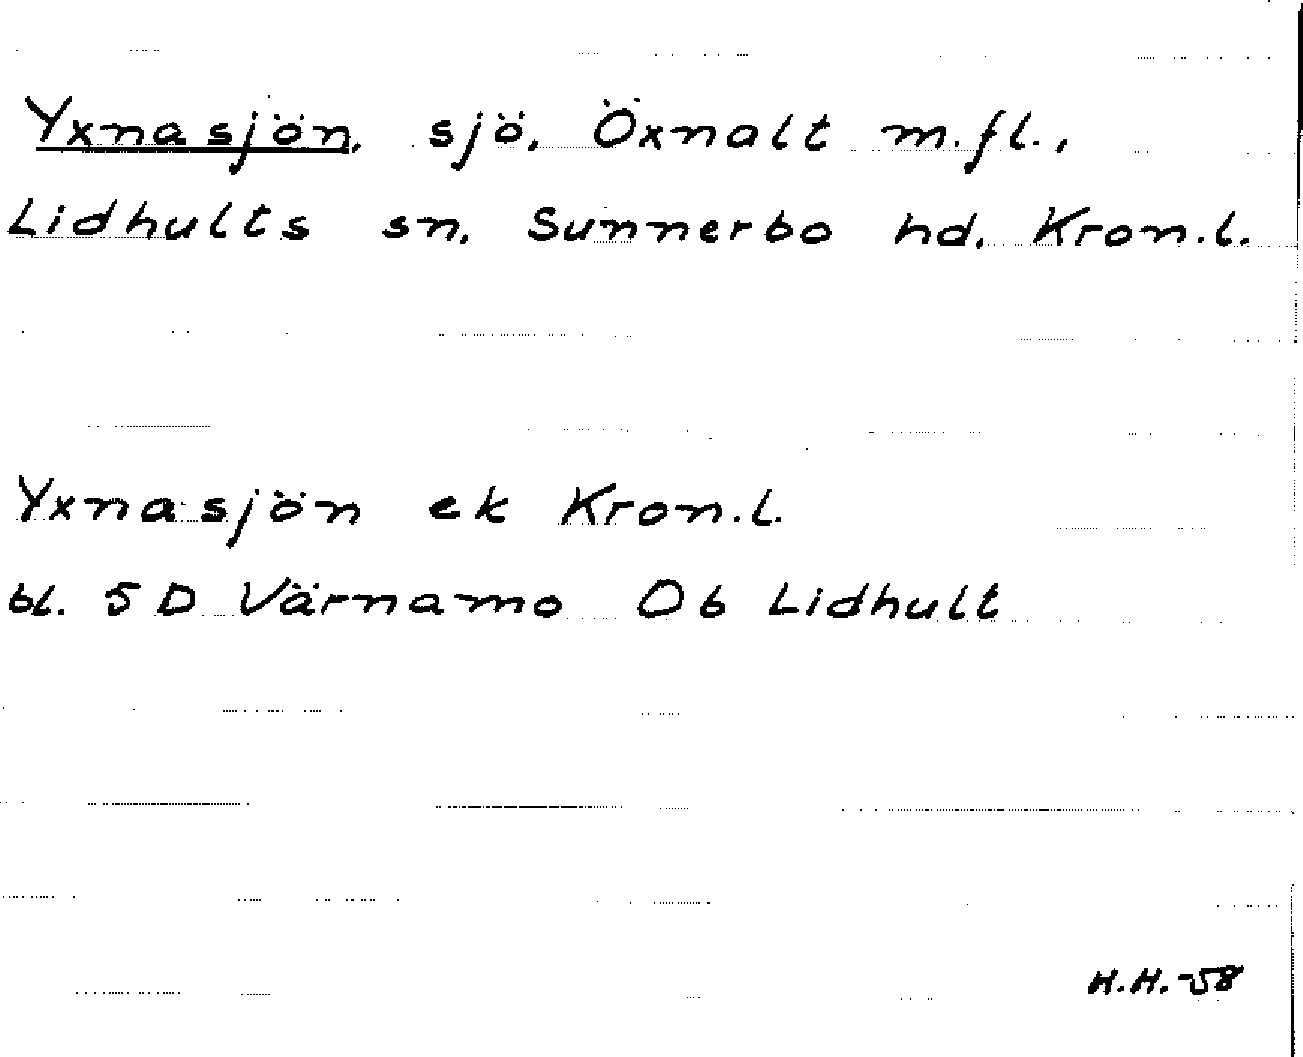 Yxnasjön, sjö, Öxnalt m.fl.,
Lidhults sn, Sunnerbo hd, Kron.l.
Yxnasjön ek Kron.l.
bl. 5 D Värnamo Ob Lidhult
H.H.-58